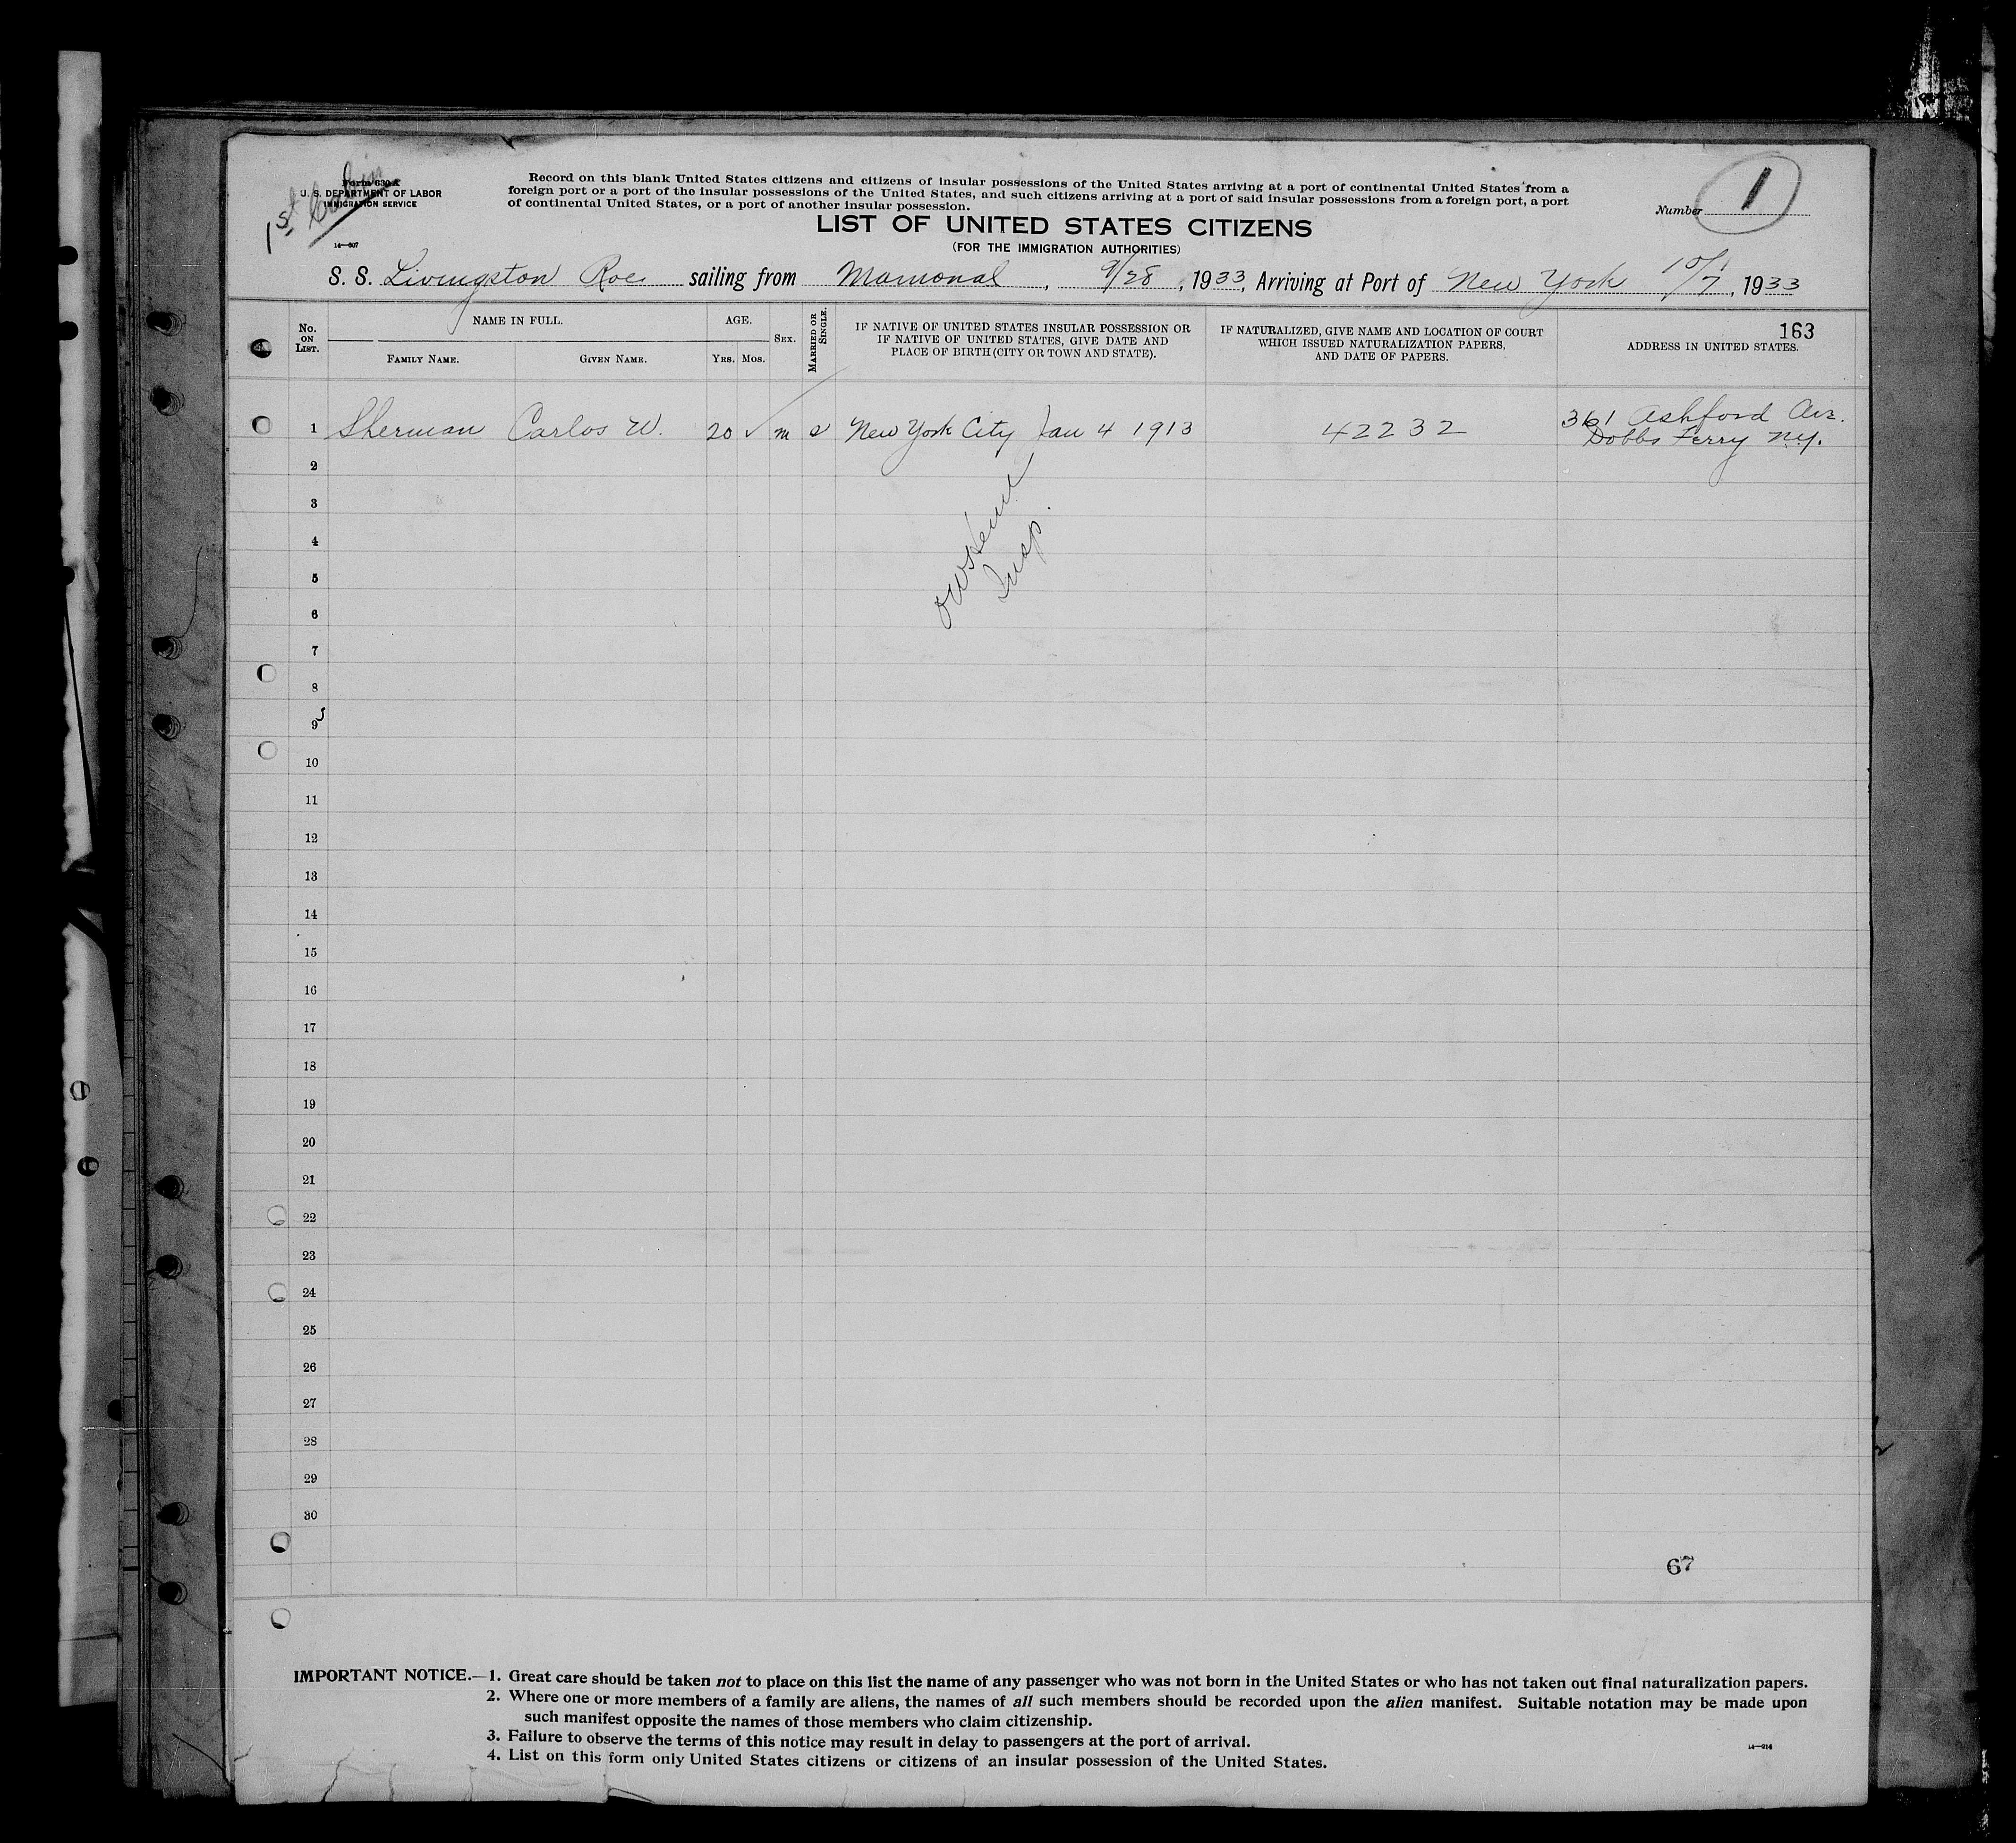 1st Cabin
Form 630 A
U. S. DEPARTMENT OF LABOR
IMMIGRATION SERVICE
14—607
Record on this blank United States citizens and citizens of insular possessions of the United States arriving at a port of continental United States from a
foreign port or a port of the insular possessions of the United States, and such citizens arriving at a port of said insular possessions from a foreign port, a port
of continental United States, or a port of another insular possession.
Number 1
LIST OF UNITED STATES CITIZENS
(FOR THE IMMIGRATION AUTHORITIES)
S. S. Livingston Roe sailing from Mamonal, 9/28, 1933, Arriving at Port of New York 10/7, 1933
163
No. ON LIST.
NAME IN FULL.
FAMILY NAME. GIVEN NAME.
AGE.
YRS. MOS.
SEX.
MARRIED OR SINGLE.
IF NATIVE OF UNITED STATES INSULAR POSSESSION OR
IF NATIVE OF UNITED STATES, GIVE DATE AND
PLACE OF BIRTH (CITY OR TOWN AND STATE).
IF NATURALIZED, GIVE NAME AND LOCATION OF COURT
WHICH ISSUED NATURALIZATION PAPERS,
AND DATE OF PAPERS.
ADDRESS IN UNITED STATES.
1 Sherman Carlos W. 20 ✓ m s New York City Jan 4 1913 42232 361 Ashford Ave.
Dobbs Ferry N.Y.
Insp.
2
3
4
5
6
7
8
9
10
11
12
13
14
15
16
17
18
19
20
21
22
23
24
25
26
27
28
29
30
67
IMPORTANT NOTICE.—1. Great care should be taken not to place on this list the name of any passenger who was not born in the United States or who has not taken out final naturalization papers.
2. Where one or more members of a family are aliens, the names of all such members should be recorded upon the alien manifest. Suitable notation may be made upon
such manifest opposite the names of those members who claim citizenship.
3. Failure to observe the terms of this notice may result in delay to passengers at the port of arrival.
4. List on this form only United States citizens or citizens of an insular possession of the United States.
14—914